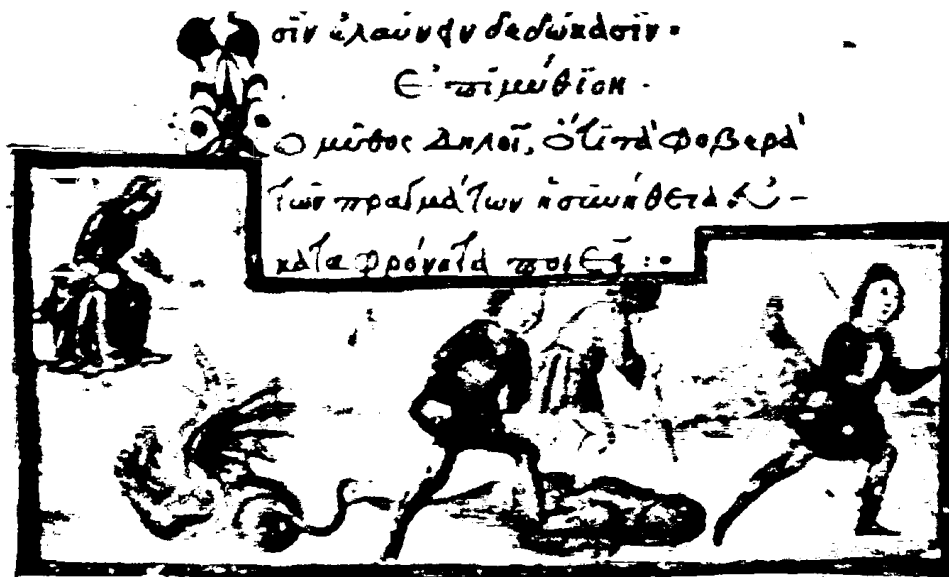 σϊν ἐλαύνειν δεδώκασϊν·
Ἐπϊμύθϊον·
Ὁ μῦθος δηλοῖ, ὅτι τὰ φοβερὰ
τῶν πραγμάτων ἡ συνήθεια εὐ-
καταφρόνητα ποιεῖ :·